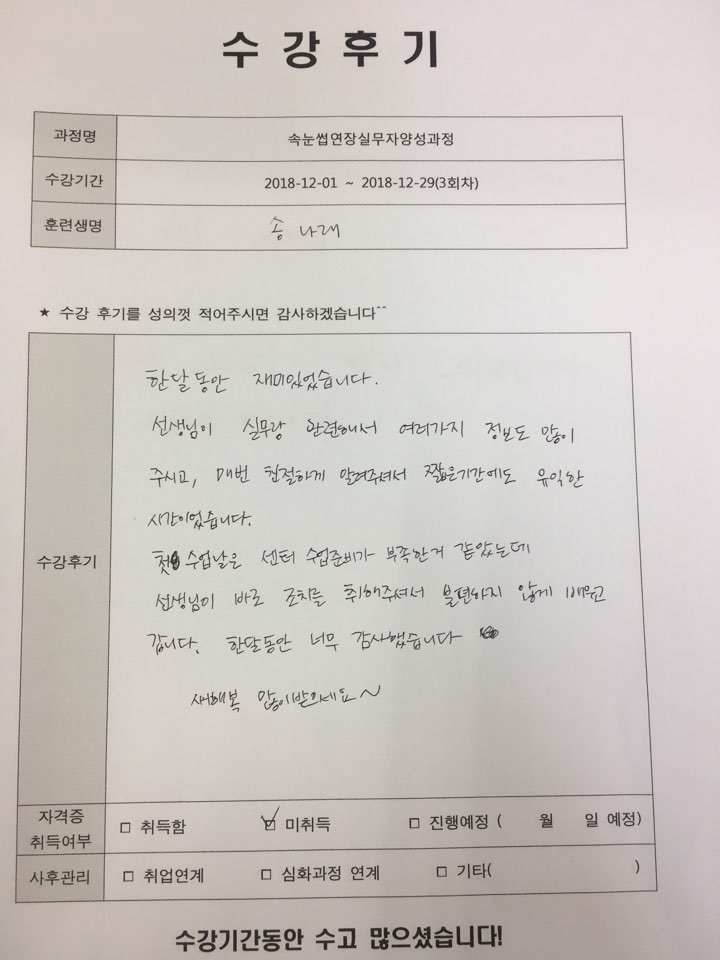 수 강 후 기
과정명 속눈썹연장실무자양성과정
수강기간 2018-12-01 ~ 2018-12-29(3회차)
훈련생명 송 나래
★ 수강 후기를 성의껏 적어주시면 감사하겠습니다^^
수강후기
한달동안 재미있었습니다.
선생님이 실무랑 관련해서 여러가지 정보도 많이
주시고, 매번 친절하게 알려주셔서 짧은기간에도 유익한
시간이었습니다.
첫 수업날은 센터 수업준비가 부족한거 같았는데
선생님이 바로 조치를 취해주셔서 불편하지 않게 배우고
갑니다. 한달동안 너무 감사했습니다
새해복 많이받으세요~
자격증 취득여부 □ 취득함 ☑ 미취득 □ 진행예정 ( 월 일 예정)
사후관리 □ 취업연계 □ 심화과정 연계 □ 기타( )
수강기간동안 수고 많으셨습니다!